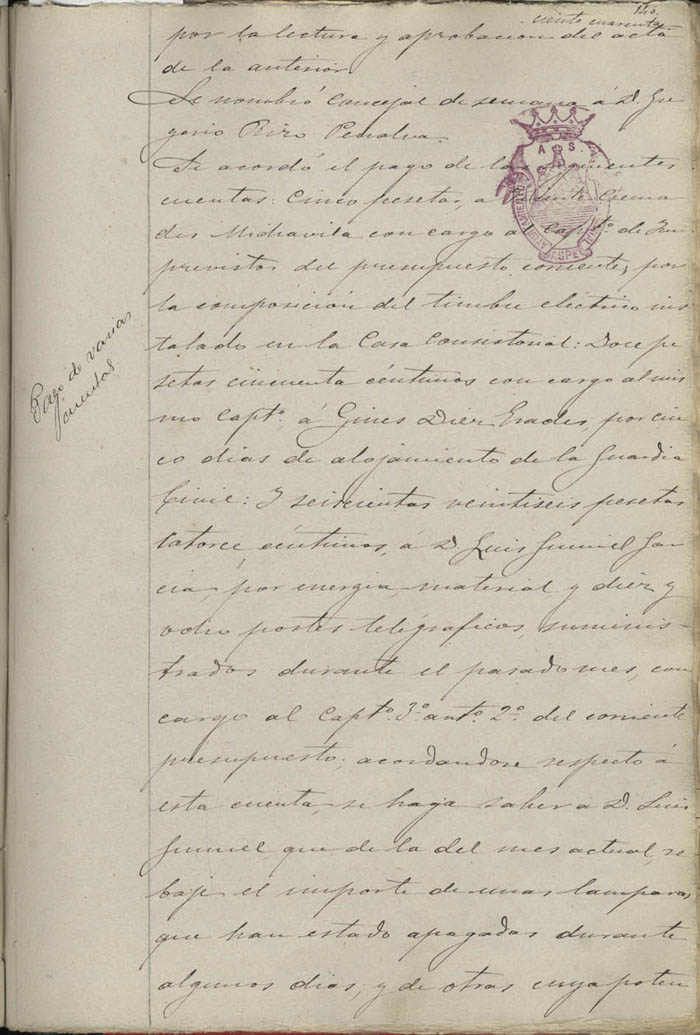 140
ciento cuarenta
por la lectura y aprobacion del acta
de la anterior
Se nombró Concejal de semana á D. Gre
gorio Rizo Penalva.
Se acordó el pago de las siguientes
cuentas: Cinco pesetas, a Vicente Crema
des Midravila con cargo al Captº. de Im
previstos del presupuesto corriente, por
la composición del timbre electrico ins
talado en la Casa Consistorial: Doce pe
setas cincuenta céntimos con cargo al mis
mo captº. á Gines Diez Erades, por cin
co dias de alojamiento de la Guardia
Civil: Y seiscientas veintiseis pesetas
catorce céntimos, á D. Luis Gumiel Gar
cia, por energia, material y diez y
ocho postes telégraficos, suminis-
trados durante el pasado mes, con
cargo al Captº. 3º. artº. 2º. del corriente
presupuesto; acordandose respecto á
esta cuenta, se haga saber a D. Luis
Gumiel que de la del mes actual, se
baje el importe de unas lamparas
que han estado apagadas durante
algunos dias, y de otras cuya poten
Pago de varias
cuentas.
A S.
AYUNTAMIENTO
ASPE